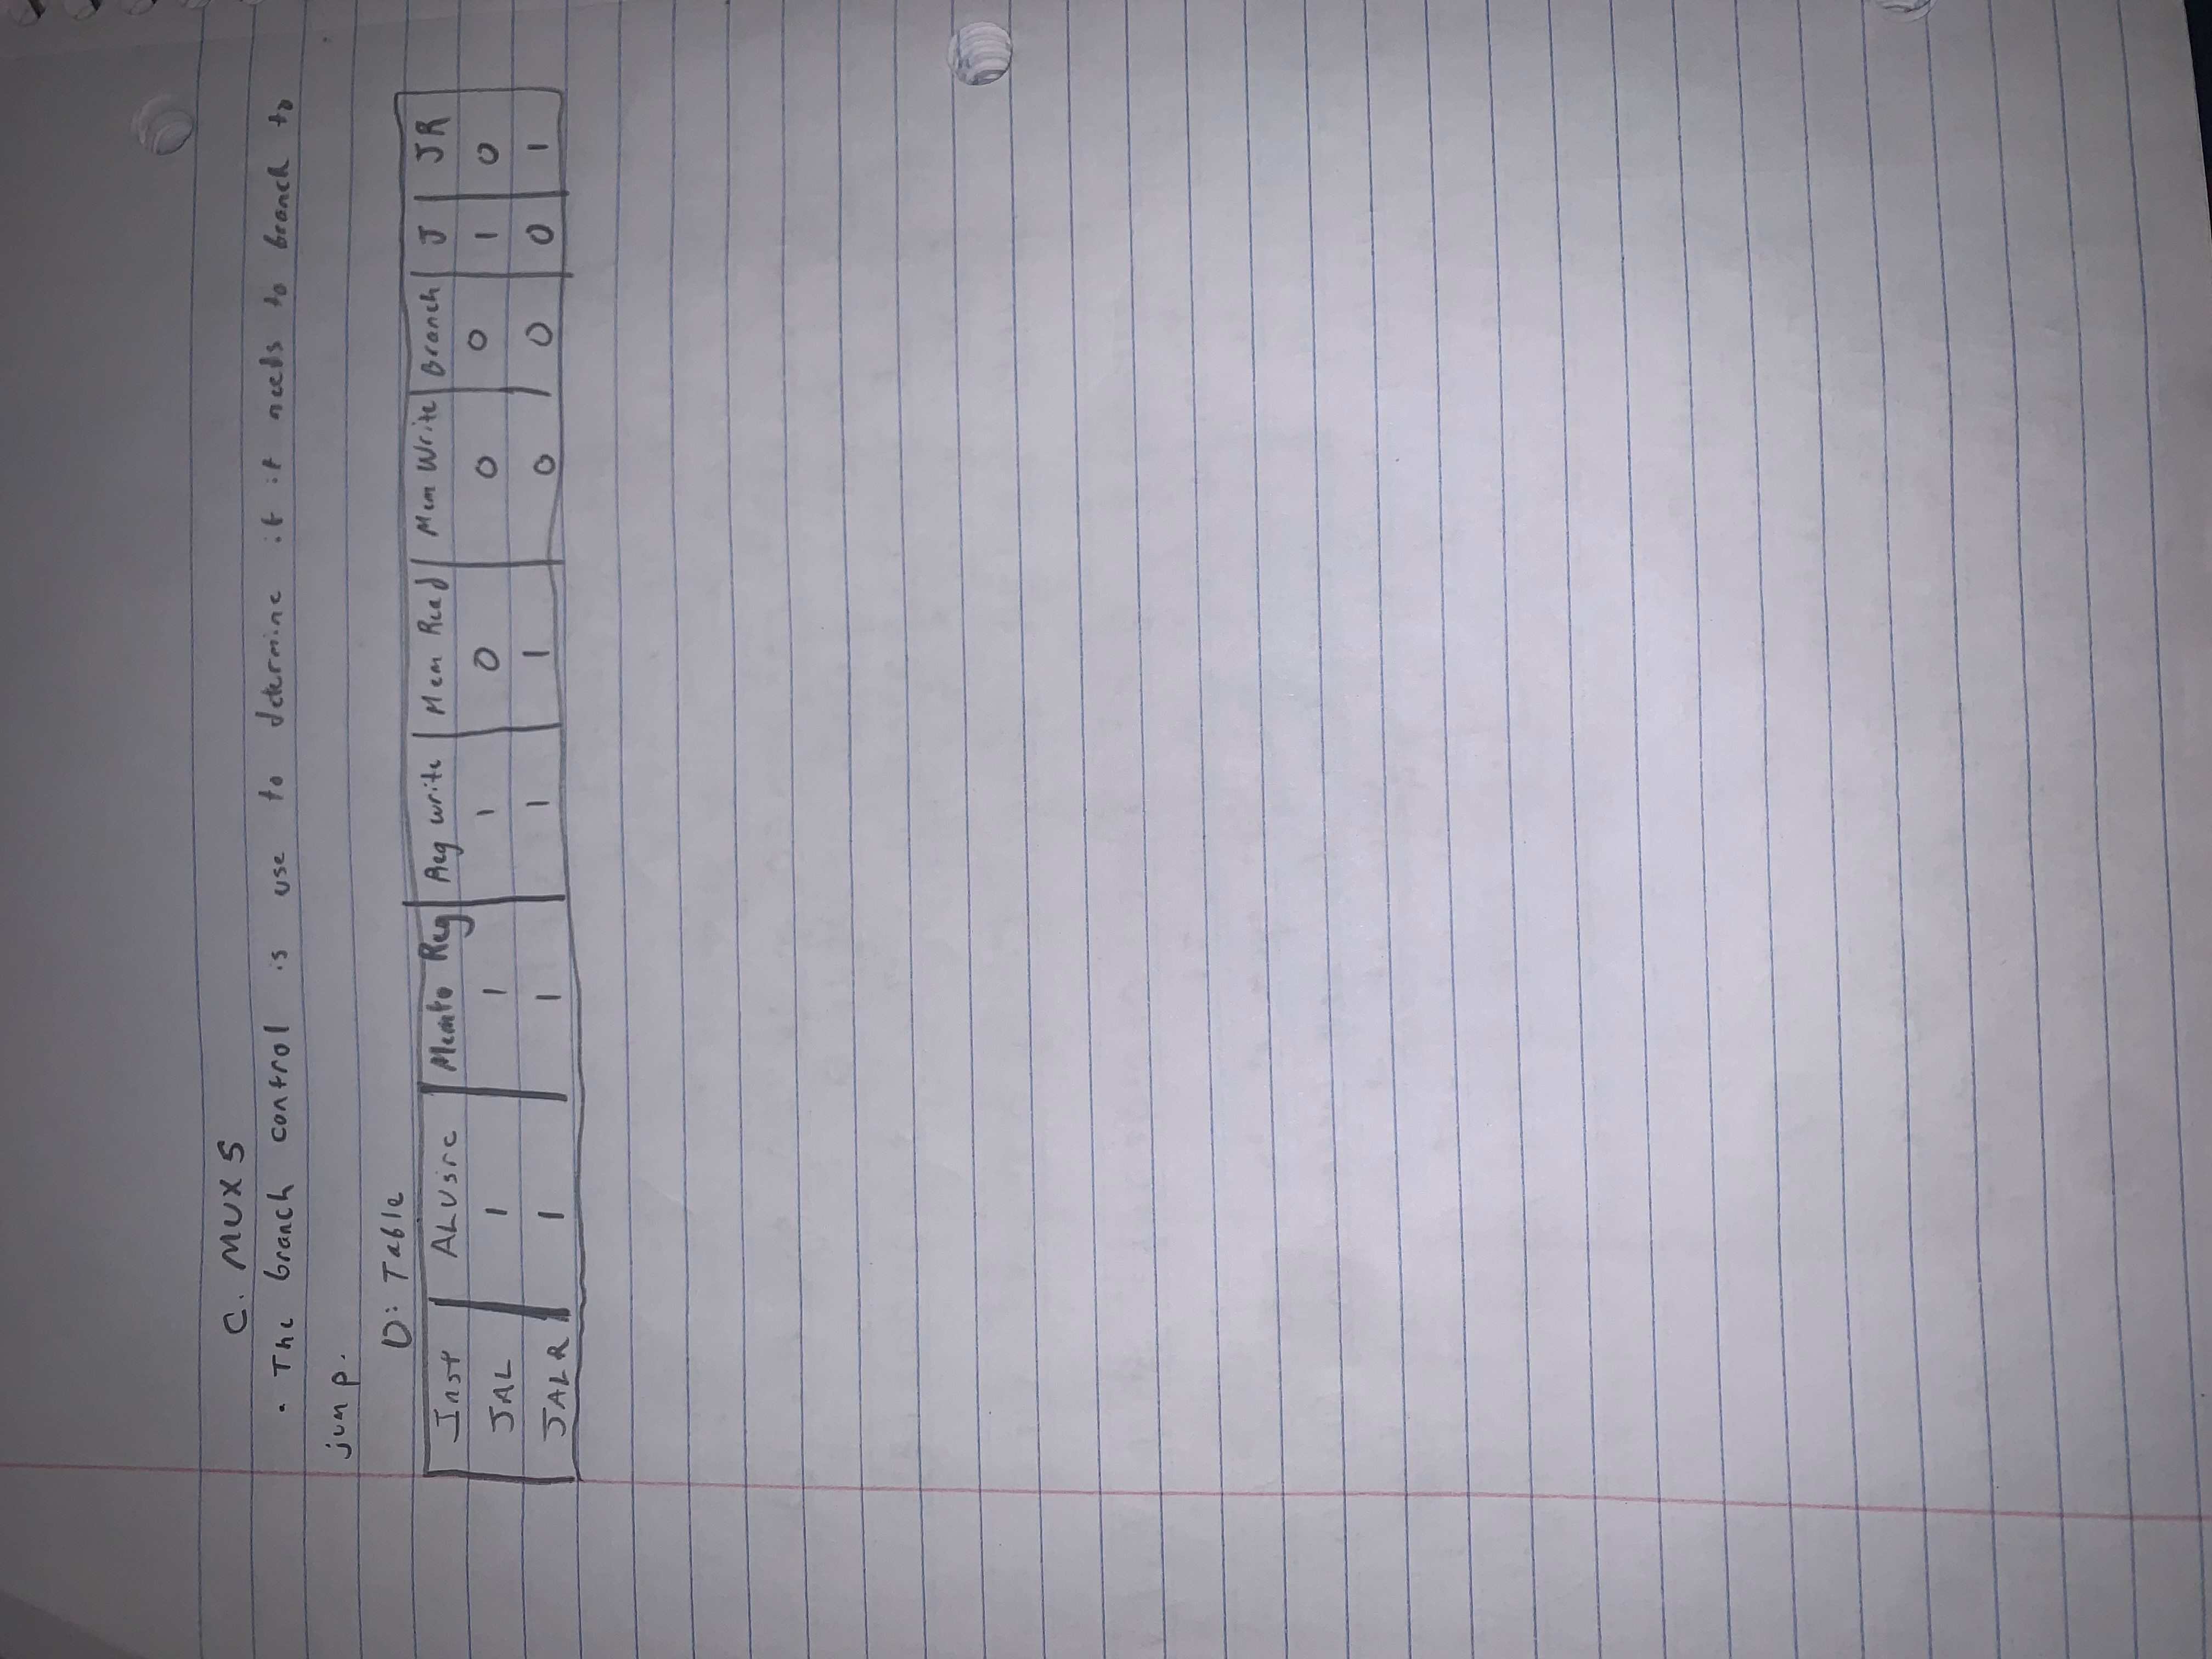 C. MUX 5
• The branch control is use to determine if it needs to branch to
jump.
D: Table
Inst ALUsrc Memto Reg Reg write Mem Read Mem Write Branch J JR
JAL 1 1 1 0 0 0 1 0
JALR 1 1 1 1 0 0 0 1